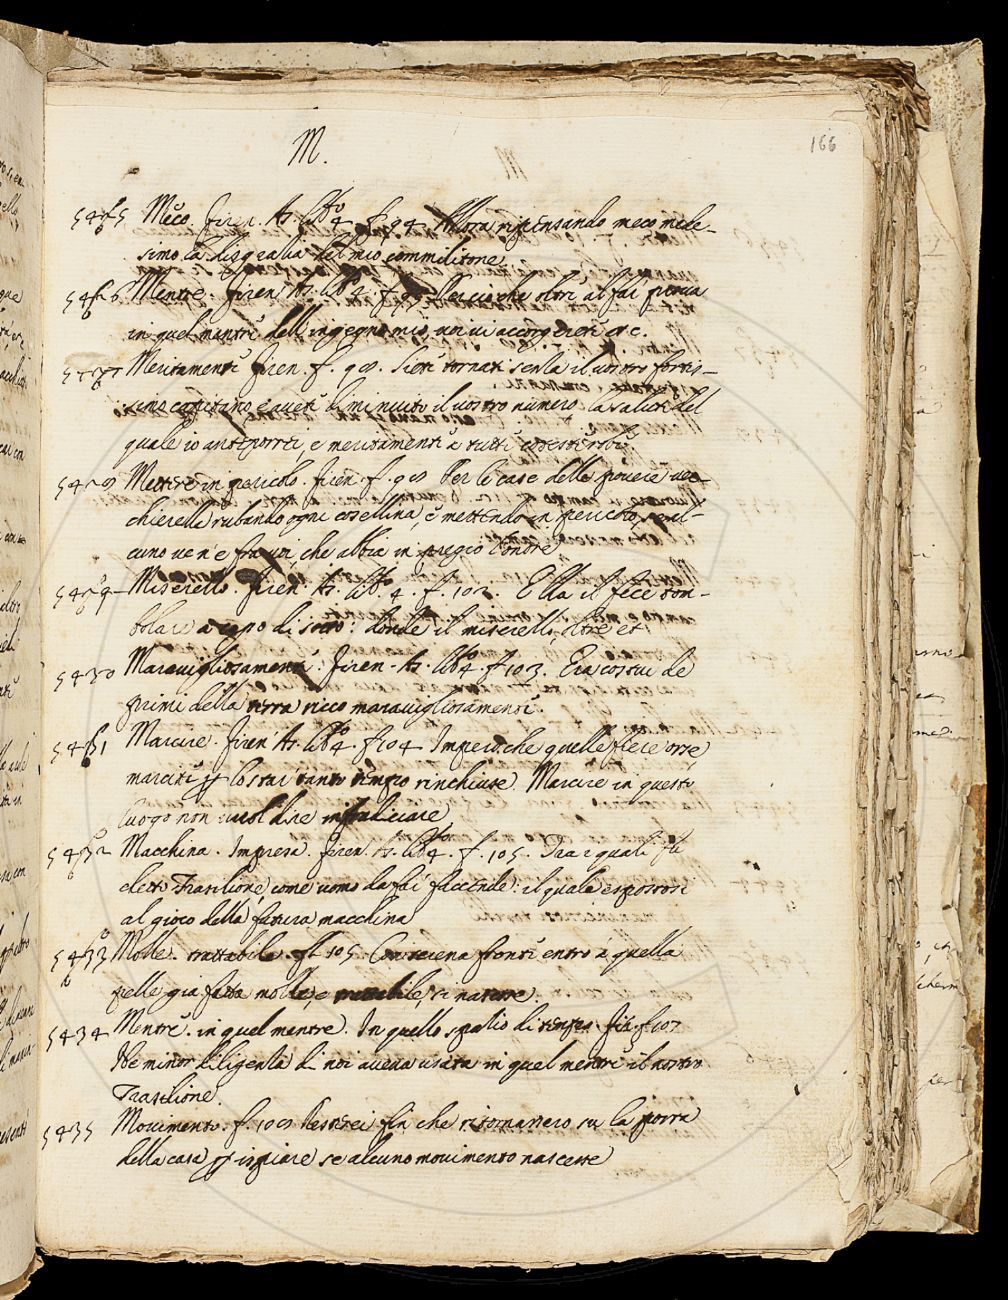 M.
166
5425 Meco. Firen. As. lib.º 4 f. 94 Allora ripensando meco mede-
simo la disgratia del mio commilitone
5426 Mentre. Firen. As. lib. 2. f. Percioche oltre al far prova
in quel mentre dell'ingegno mio, voi vi accorgerete etc.
Meritamente Firen. f. 98. Siete tornati senza il vostro fortis-
simo capitano e avete diminuito il vostro numero. la salute del
quale io anteporrei, e meritamente a tutte coteste robe
Mettere in pericolo. Firen. f. 98 Per le case delle povere vec-
chierelle rubando ogni cosellina, e mettendo in pericolo, se al-
cuno ve n'è fra voi, che abbia in pregio l'onore
5429 Miserello. Firen. As. lib. 4. f. 102. Ella il fece tom-
bolare a capo di sotto: donde il miserello, oltre et.
5430 Maravigliosamente. Firen. As. lib. 4. f. 103. Era costui de
primi della terra ricco maravigliosamente.
5431 Marcire. Firen. As. lib. 4. f. 104 Imperò che quelle fiere orse,
marcite p lo star tanto tempo rinchiuse. Marcire in questo
luogo non vuol dire infradiciare
5432 Macchina. Impresa. Firen. As. lib. 4. f. 105. Tra i quali fu
eletto Trasilione, come uomo da far faccende: il quale espostosi
al gioco della futura macchina
5433 Molle. trattabile. f. 105. Con serena fronte entro a quella
pelle gia fatta molle, e trattabile si nascose.
5434 Mentre. in quel mentre. In quello spazio di tempo. Fir. f. 107
Ne minor diligenza di noi aveva usata in quel mentre il nostro
Trasilione.
5435 Movimento. f. 108 Stettesi fin che ritornassero su la porta
della casa p ispiare se alcuno movimento nascesse